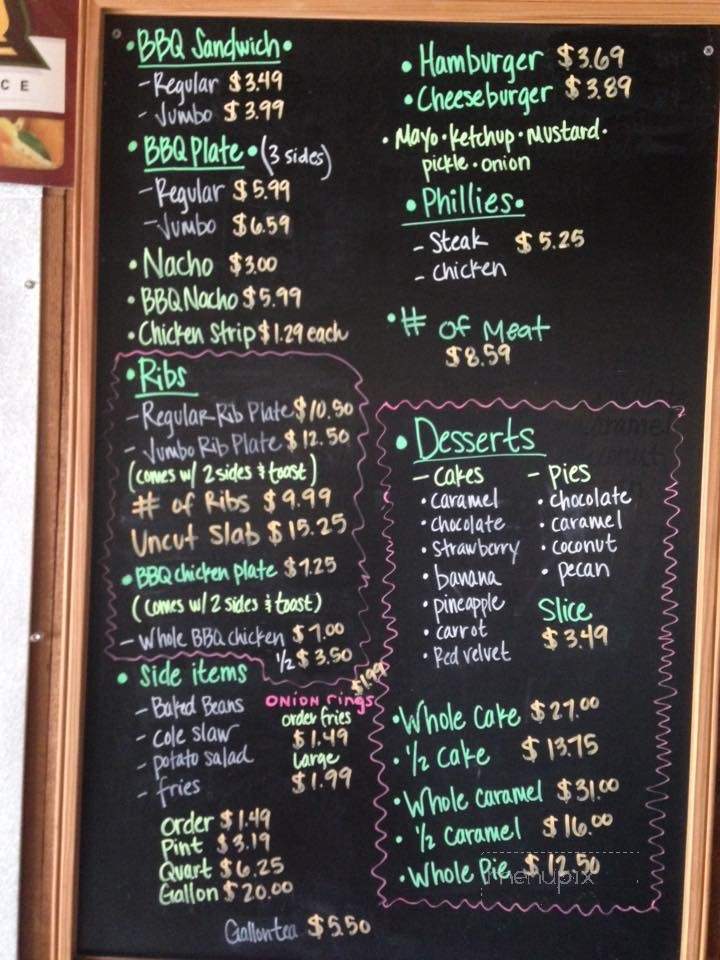 CE
• BBQ Sandwich •
- Regular $3.49
- Jumbo $3.99
• BBQ Plate • (3 sides)
- Regular $5.99
- Jumbo $6.59
• Nacho $3.00
• BBQ Nacho $5.99
• Chicken Strip $1.29 each
• Ribs
- Regular-Rib Plate $10.50
- Jumbo Rib Plate $12.50
(comes w/ 2 sides & toast)
# of Ribs $9.99
Uncut Slab $15.25
• BBQ chicken plate $7.25
(comes w/ 2 sides & toast)
- Whole BBQ chicken $7.00
1/2 $3.50
• Side items
- Baked Beans
- cole slaw
- potato salad
- fries
$1.99
Onion rings
order fries
$1.49
Large
$1.99
Order $1.49
Pint $3.19
Quart $6.25
Gallon $20.00
Gallon tea $5.50
• Hamburger $3.69
• Cheeseburger $3.89
• Mayo • ketchup • mustard •
pickle • onion
• Phillies •
- Steak $5.25
- chicken
• # of Meat
$8.59
• Desserts
- cakes
• caramel
• chocolate
• strawberry
• banana
• pineapple
• carrot
• Red velvet
- pies
• chocolate
• caramel
• coconut
• pecan
Slice
$3.49
• Whole Cake $27.00
• 1/2 Cake $13.75
• Whole Caramel $31.00
• 1/2 Caramel $16.00
• Whole Pie $12.50
menupix